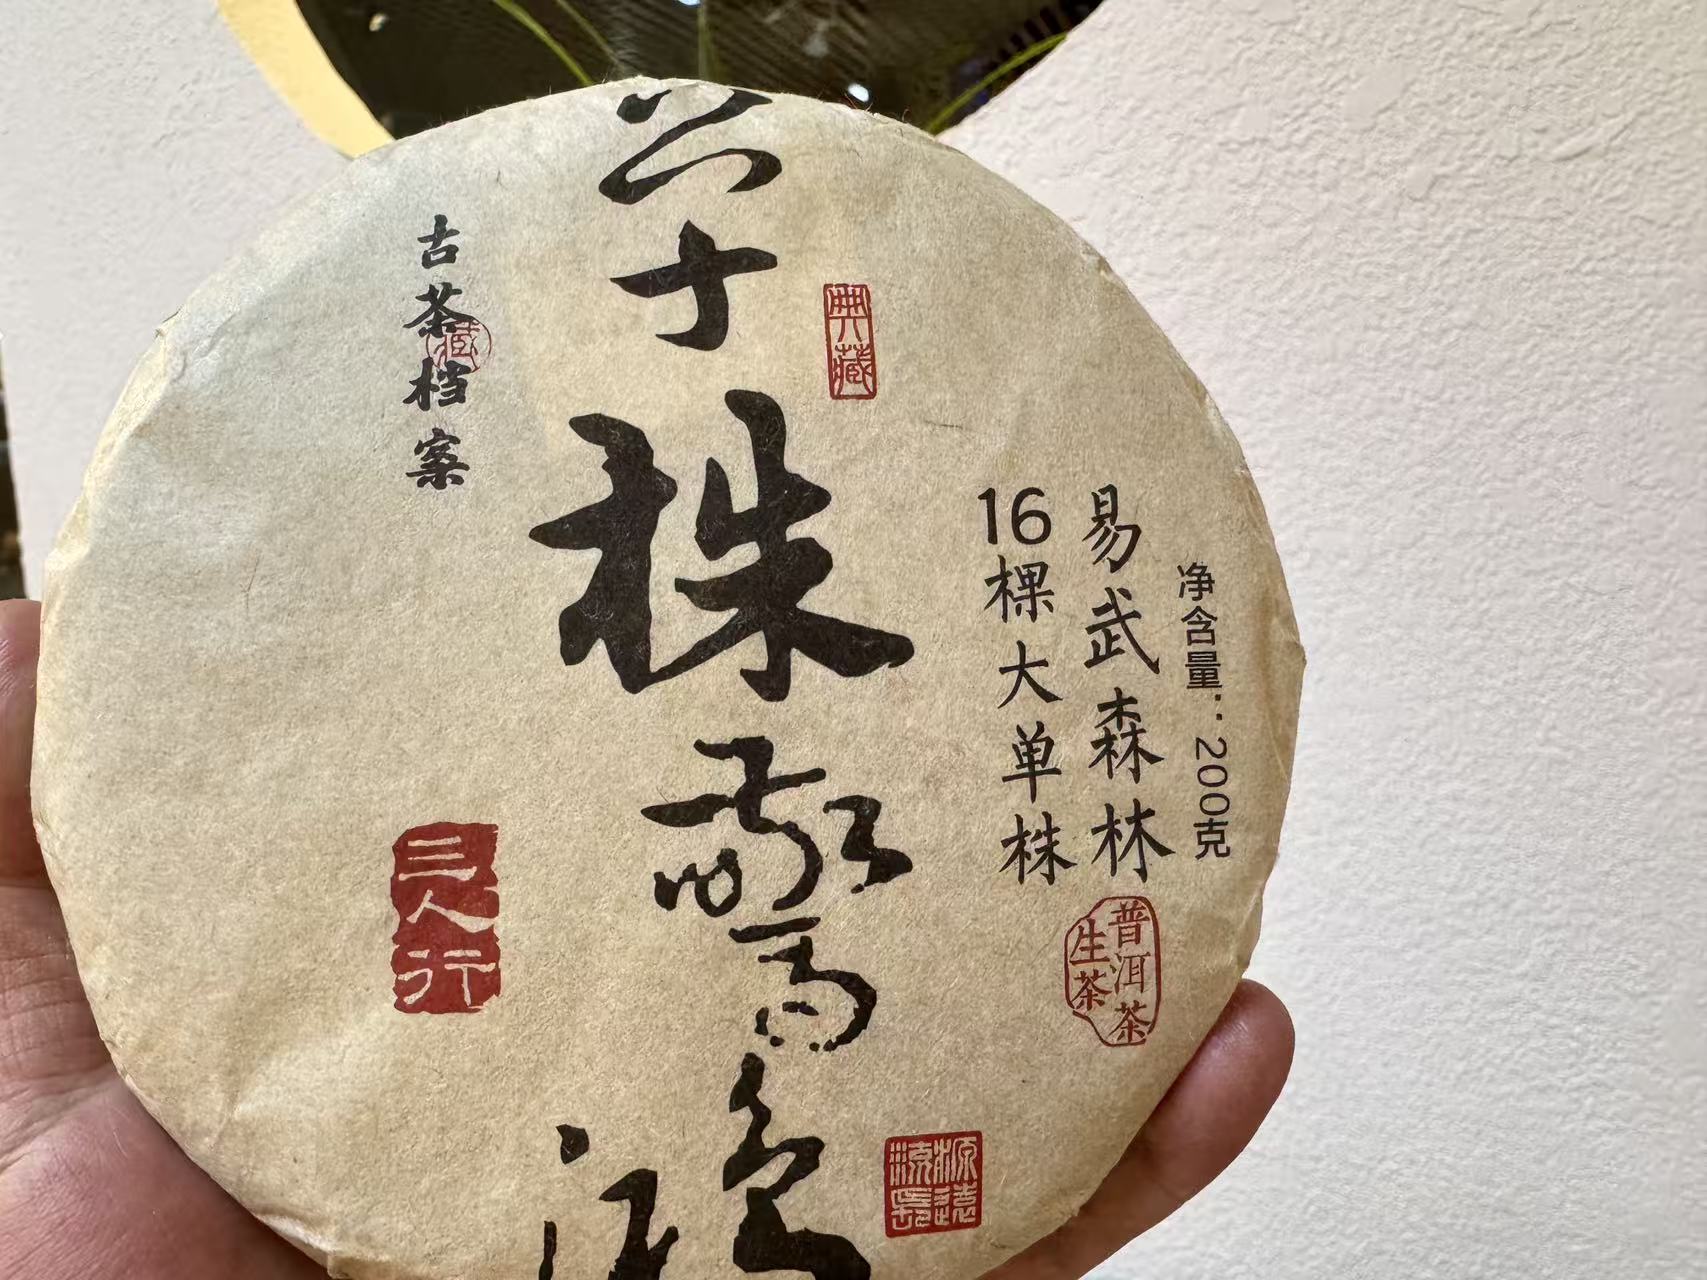 净含量：200克
易武森林
16棵大单株
普洱茶
生茶
典藏
株
古茶档案
藏
三人行
源远
流长